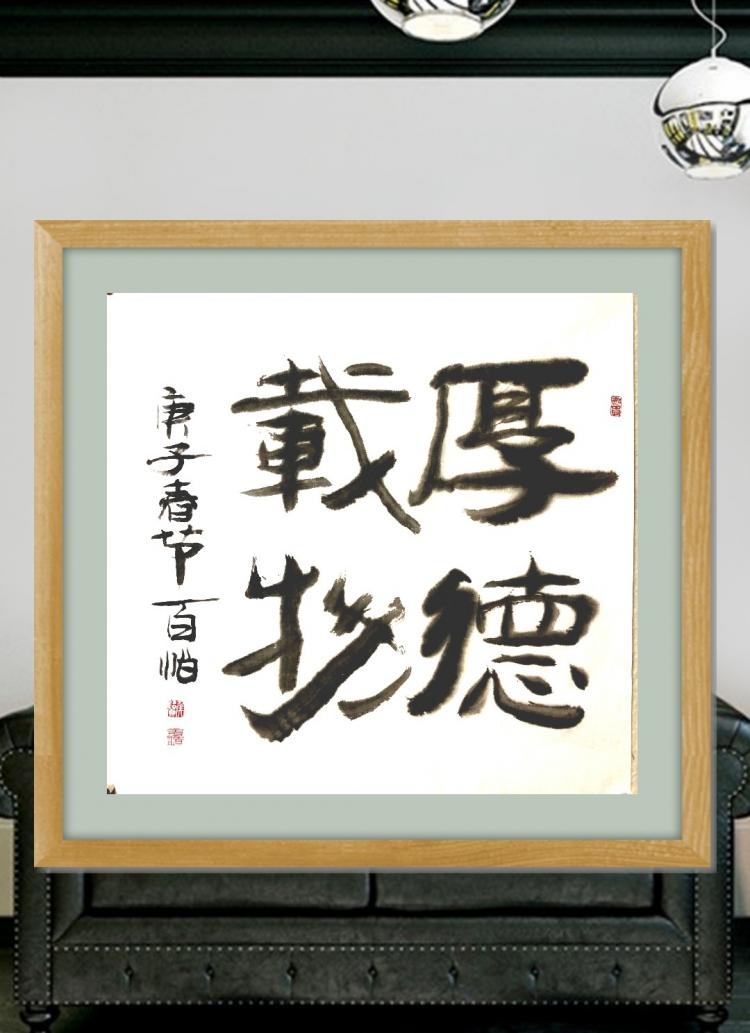 厚德
載物
庚子春节百怡